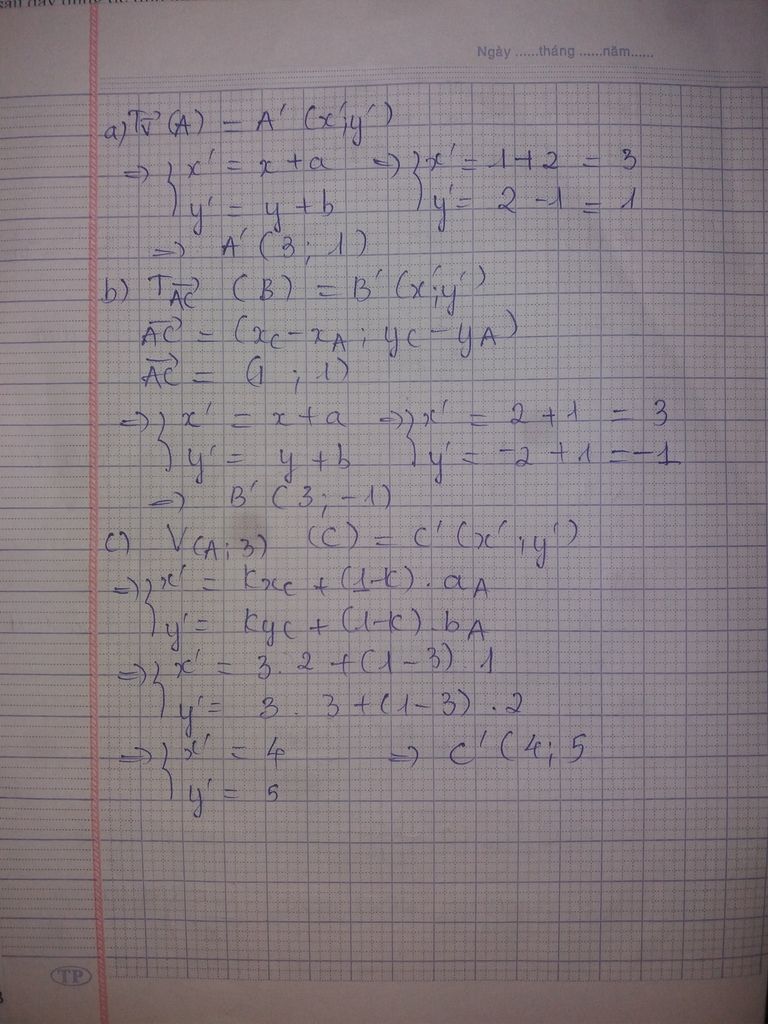 Ngày ......tháng ......năm......
a) T_v⃗ (A) = A' (x';y')
=> { x' = x + a => { x' = 1 + 2 = 3
y' = y + b y' = 2 - 1 = 1
=> A' (3; 1)
b) T_AC⃗ (B) = B' (x';y')
AC⃗ = (x_C - x_A ; y_C - y_A)
AC⃗ = (1 ; 1)
=> { x' = x + a => { x' = 2 + 1 = 3
y' = y + b y' = -2 + 1 = -1
=> B' (3; -1)
c) V(A; 3) (C) = C' (x' ; y')
=> { x' = kx_C + (1-k) . a_A
y' = ky_C + (1-k) . b_A
=> { x' = 3 . 2 + (1 - 3) . 1
y' = 3 . 3 + (1 - 3) . 2
=> { x' = 4 => C' (4; 5
y' = 5
TP